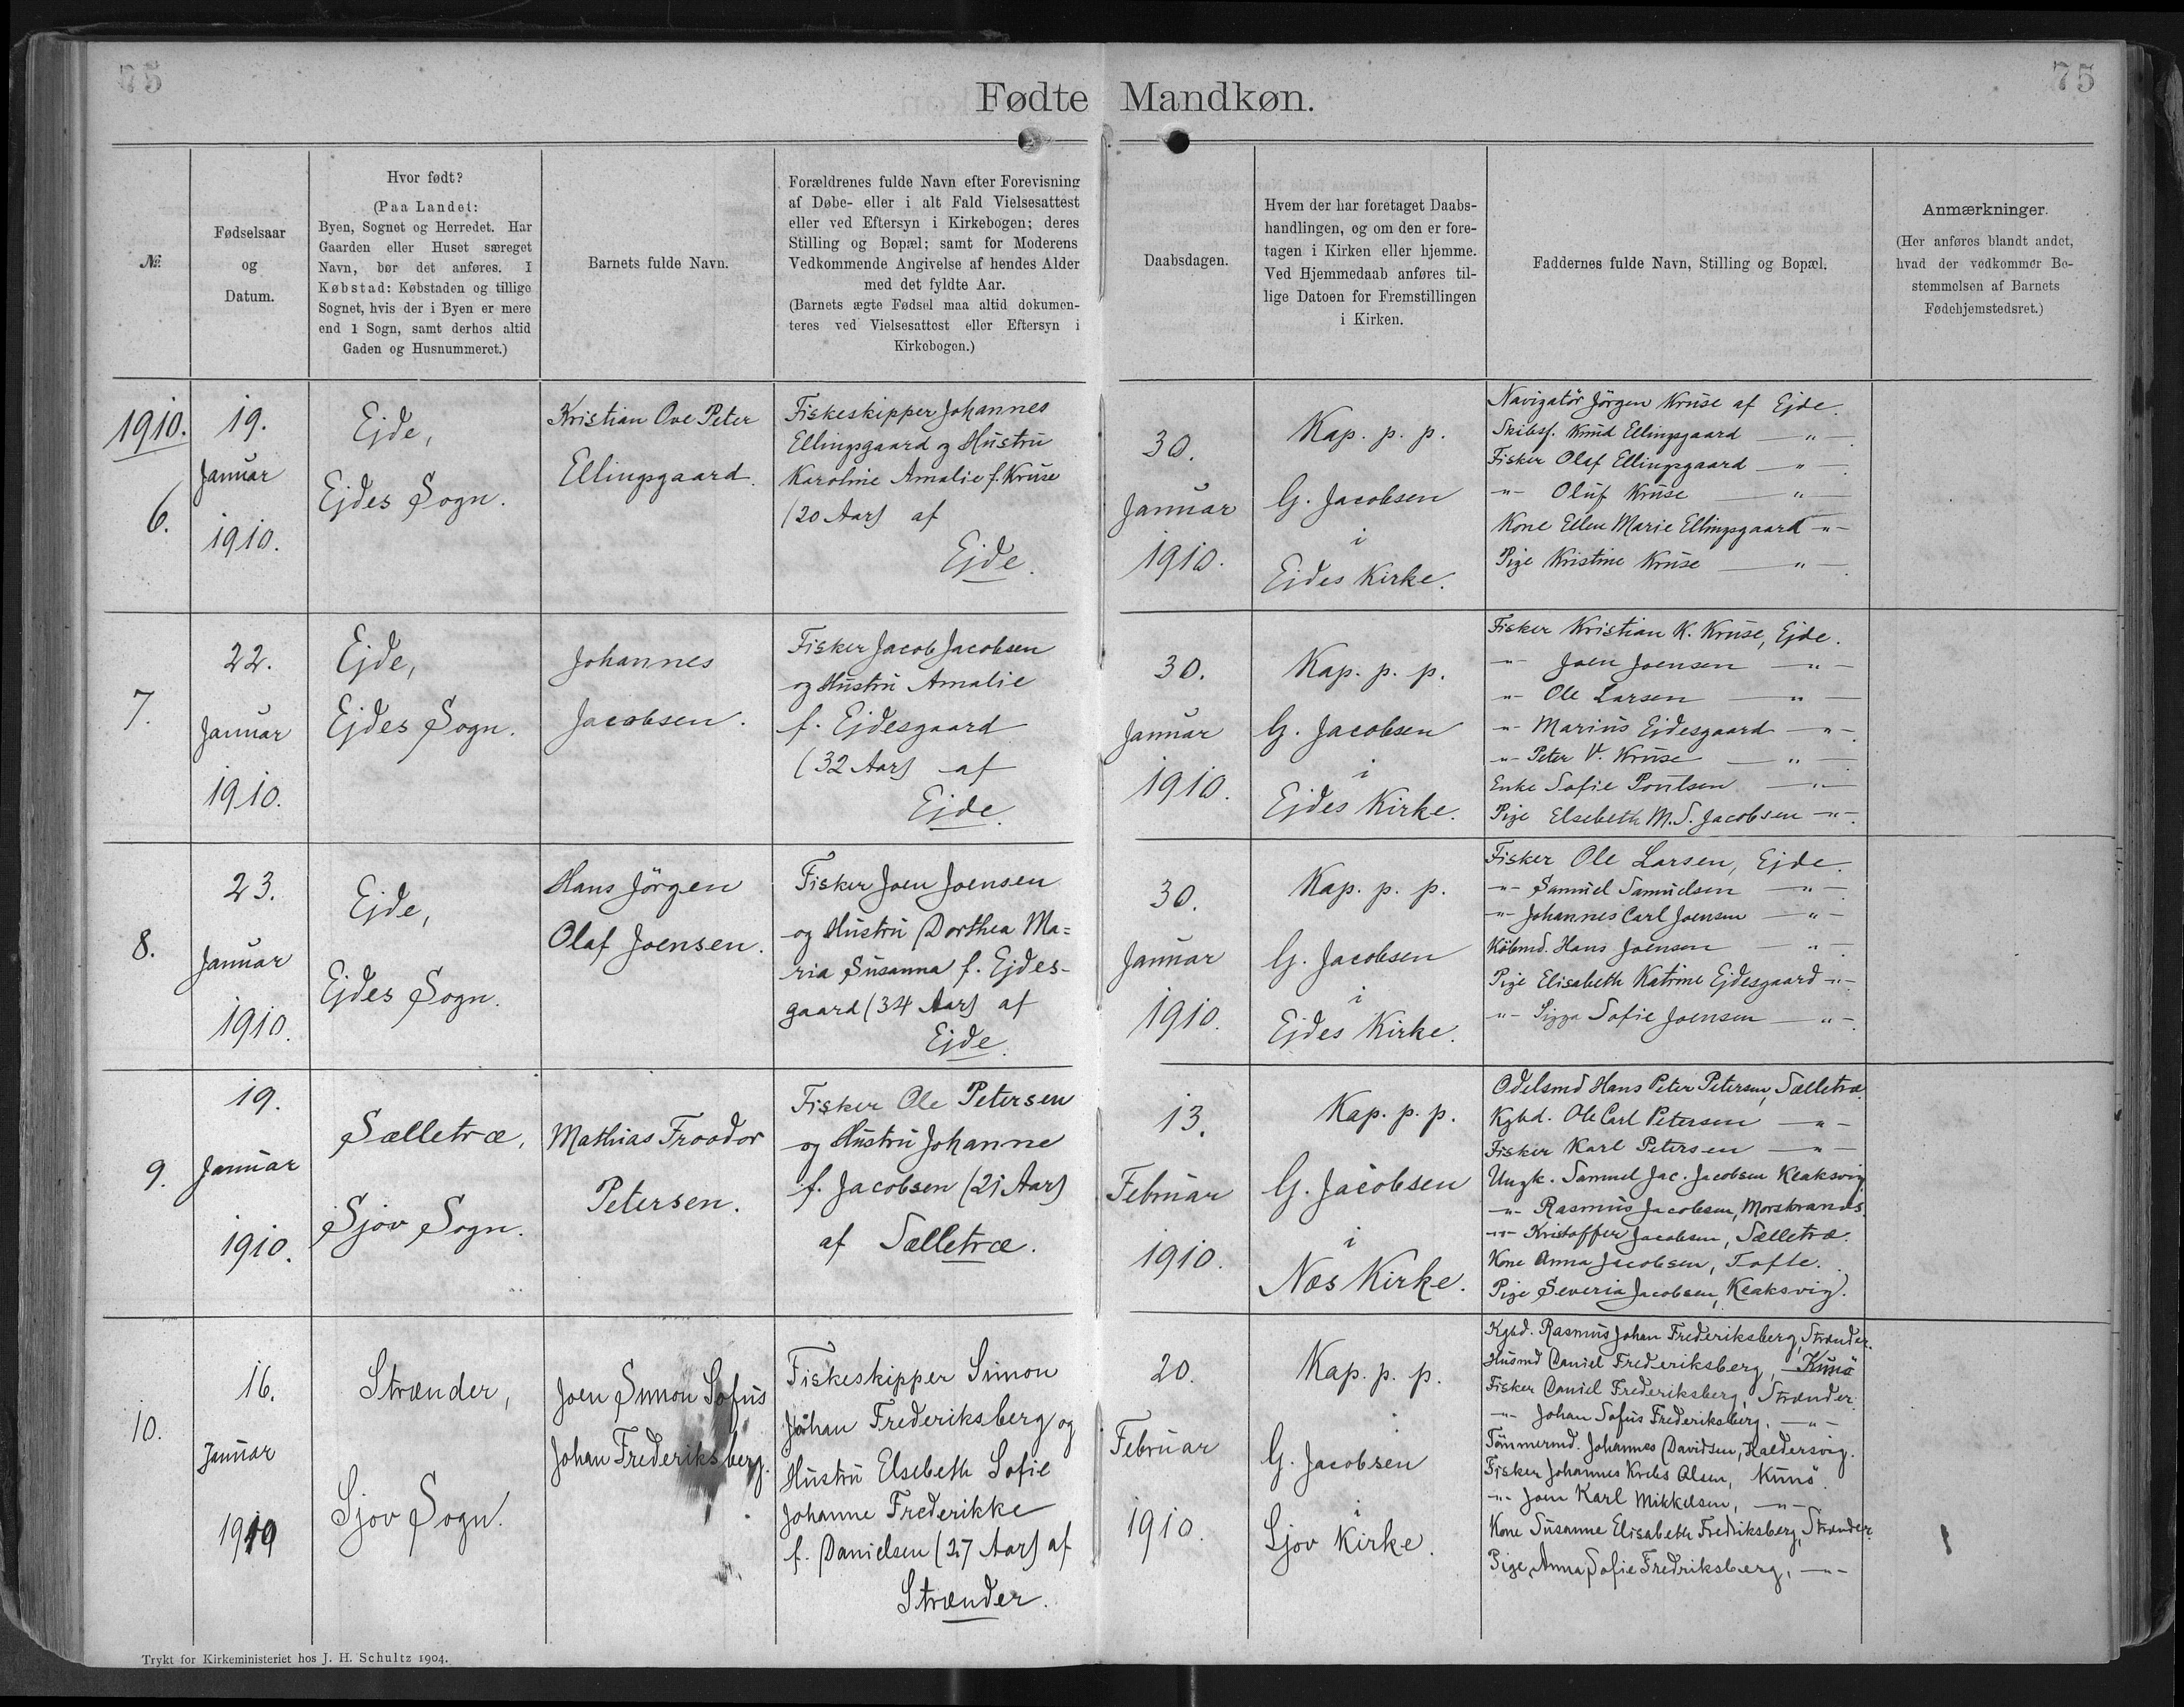 75
75
Fødte Mandkøn.
№
Fødselsaar
og
Datum.
Hvor født?
(Paa Landet:
Byen, Sognet og Herredet. Har
Gaarden eller Huset særeget
Navn, bør det anføres. I
Købstad: Købstaden og tillige
Sognet, hvis der i Byen er mere
end 1 Sogn, samt derhos altid
Gaden og Husnummeret.)
Barnets fulde Navn.
Forældrenes fulde Navn efter Forevisning
af Døbe- eller i alt Fald Vielsesattest
eller ved Eftersyn i Kirkebogen; deres
Stilling og Bopæl; samt for Moderens
Vedkommende Angivelse af hendes Alder
med det fyldte Aar.
(Barnets ægte Fødsel maa altid dokumen-
teres ved Vielsesattest eller Eftersyn i
Kirkebogen.)
Daabsdagen.
Hvem der har foretaget Daabs-
handlingen, og om den er fore-
tagen i Kirken eller hjemme.
Ved Hjemmedaab anføres til-
lige Datoen for Fremstillingen
i Kirken.
Faddernes fulde Navn, Stilling og Bopæl.
Anmærkninger.
(Her anføres blandt andet,
hvad der vedkommer Be-
stemmelsen af Barnets
Fødehjemstedsret.)
1910.
6.
19.
Januar
1910.
Ejde,
Ejdes Sogn.
Kristian Ove Peter
Ellingsgaard.
Fiskeskipper Johannes
Ellingsgaard og Hustru
Karoline Amalie f. Kruse
(20 Aar) af
Ejde.
30.
Januar
1910.
Kap. p. p.
G. Jacobsen
i
Ejdes Kirke.
Navigatör Jörgen Kruse af Ejde.
Skibsf. Knud Ellingsgaard —"—.
Fisker Olaf Ellingsgaard —"—.
-"- Oluf Kruse —"—
Kone Ellen Marie Ellingsgaard -"-
Pige Kristine Kruse —"—.
7.
22.
Januar
1910.
Ejde,
Ejdes Sogn.
Johannes
Jacobsen.
Fisker Jacob Jacobsen
og Hustru Amalie
f. Ejdesgaard
(32 Aar) af
Ejde.
30.
Januar
1910.
Kap. p. p.
G. Jacobsen
i
Ejdes Kirke.
Fisker Kristian K. Kruse, Ejde.
-"- Joen Joensen -"-
-"- Ole Larsen —"—
-"- Marius Ejdesgaard -"-.
-"- Peter V. Kruse —"—.
Enke Sofie Poulsen —"—
Pige Elsebeth M. S. Jacobsen -"-.
8.
23.
Januar
1910.
Ejde,
Ejdes Sogn.
Hans Jörgen
Olaf Joensen.
Fisker Joen Joensen
og Hustru Dorthea Ma=
ria Susanna f. Ejdes-
gaard (34 Aar) af
Ejde.
30.
Januar
1910.
Kap. p. p.
G. Jacobsen
i
Ejdes Kirke.
Fisker Ole Larsen, Ejde.
-"- Samuel Samuelsen -"-.
-"- Johannes Carl Joensen -"-
Köbmd. Hans Joensen -"-
Pige Elisabeth Katrine Ejdesgaard -"-
-"- Sigga Sofie Joensen -"-.
9.
19.
Januar
1910.
Sælletræ,
Sjov Sogn.
Mathias Froodor
Petersen.
Fisker Ole Petersen
og Hustru Johanne
f. Jacobsen (21 Aar)
af Sælletræ.
13.
Februar
1910.
Kap. p. p.
G. Jacobsen
i
Næs Kirke.
Odelsmd Hans Peter Petersen, Sælletræ
Kgbd. Ole Carl Petersen -"-
Fisker Karl Petersen -"-
Ungk. Samuel Jac. Jacobsen Klaksvig
-"- Rasmus Jacobsen,
-"- Kristoffer Jacobsen, Sælletræ.
Kone Anna Jacobsen, Tofte.
Pige Severia Jacobsen, Klaksvig.
10.
16.
Januar
1910
Strænder,
Sjov Sogn.
Joen Simon Sofus
Johan Frederiksberg.
Fiskeskipper Simon
Johan Frederiksberg og
Hustru Elsebeth Sofie
Johanne Frederikke
f. Danielsen (27 Aar) af
Strænder.
20.
Februar
1910.
Kap. p. p.
G. Jacobsen
i
Sjov Kirke.
Kgbd. Rasmus Johan Frederiksberg, Strænder.
Husmd Daniel Frederiksberg, Kunö
Fisker Daniel Frederiksberg, Strænder.
-"- Johan Sofus Frederiksberg. -"-
Tömmermd. Johannes Davidsen, Haldersvig.
Fisker Johannes Krebs Olsen, Kunö.
-"- Joen Karl Mikkelsen, -"-
Kone Susanne Elisabeth Fredriksberg, Strænder.
Pige Anna Sofie Fredriksberg, -"-
Trykt for Kirkeministeriet hos J. H. Schultz 1904.